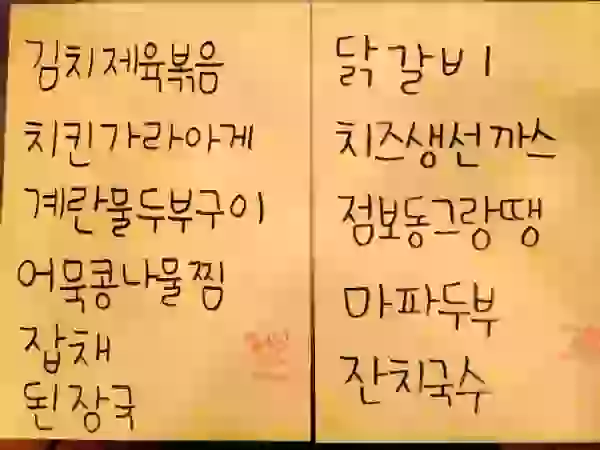 김치제육볶음
치킨가라아게
계란물두부구이
어묵콩나물찜
잡채
된장국
닭갈비
치즈생선까스
점보동그랑땡
마파두부
잔치국수